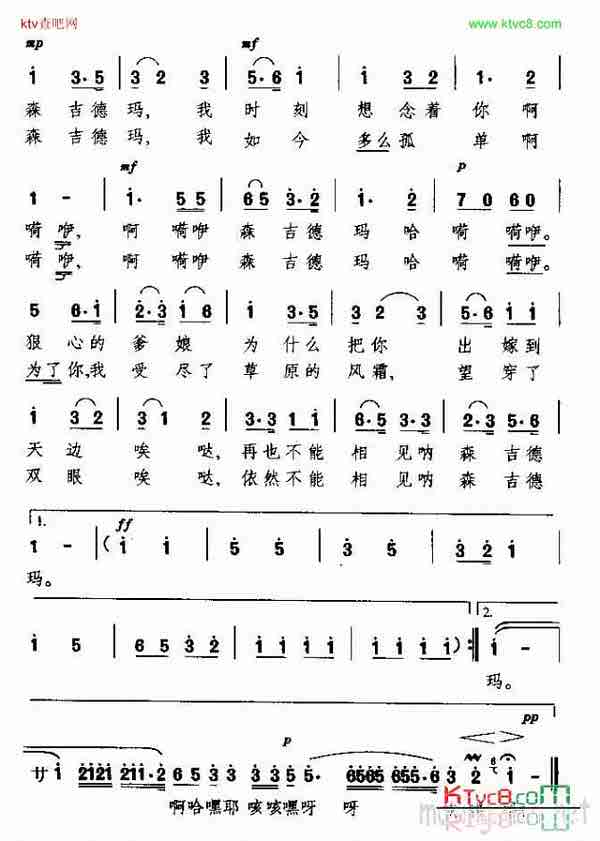 ktv查吧网
www.ktvc8.com
mp mf
i 3·5 3 2 3 5·6 i 3 2 3 i·2
森吉德玛，我时刻想念着你啊
森吉德玛，我如今多么孤单啊
mf p
1 - i· 55 65 3·2 i· 2 70 60
嗬咿，啊嗬咿森吉德玛哈嗬嗬咿。
嗬咿，啊嗬咿森吉德玛哈嗬嗬咿。
5 6·i 2·3 i6 i 3·5 3 2 3 5·6 i i
狠心的爹娘为什么把你出嫁到
为了你，我受尽了草原的风霜，望穿了
i 3 2 3 1 2 3·3 1 1 6·5 3·3 2 5·6
天边唉哒，再也不能相见呐森吉德
双眼唉哒，依然不能相见呐森吉德
1. ff
1 - ( i i 5 5 3 5 3 2 1
玛。
2.
i 5 6 5 3 2 1 1 1 1 1 1 1 1 ) : i -
玛。
pp
p
廿 i 2121 2121 211·2 6 5 3 3 2·5 5· 6565 6565 655·6 3 2 i -
啊哈嘿耶 咳咳嘿呀 呀
KTvc8.com